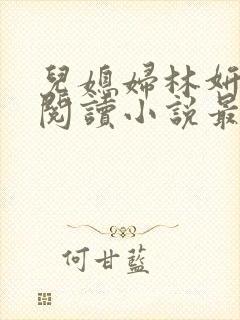 兒媳婦林妍
閱讀小說最
何甘藍